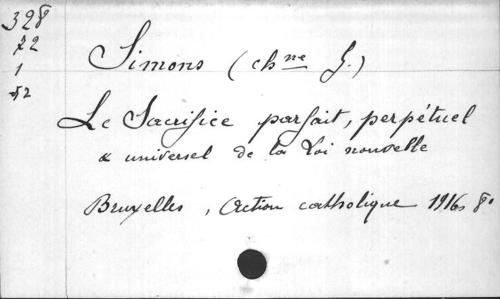 328
72
1
52
Simons (chne G.)
Le Sacrifice parfait, perpétuel
& universel de la Loi nouvelle
Bruxelles, Action catholique 1916, 8°